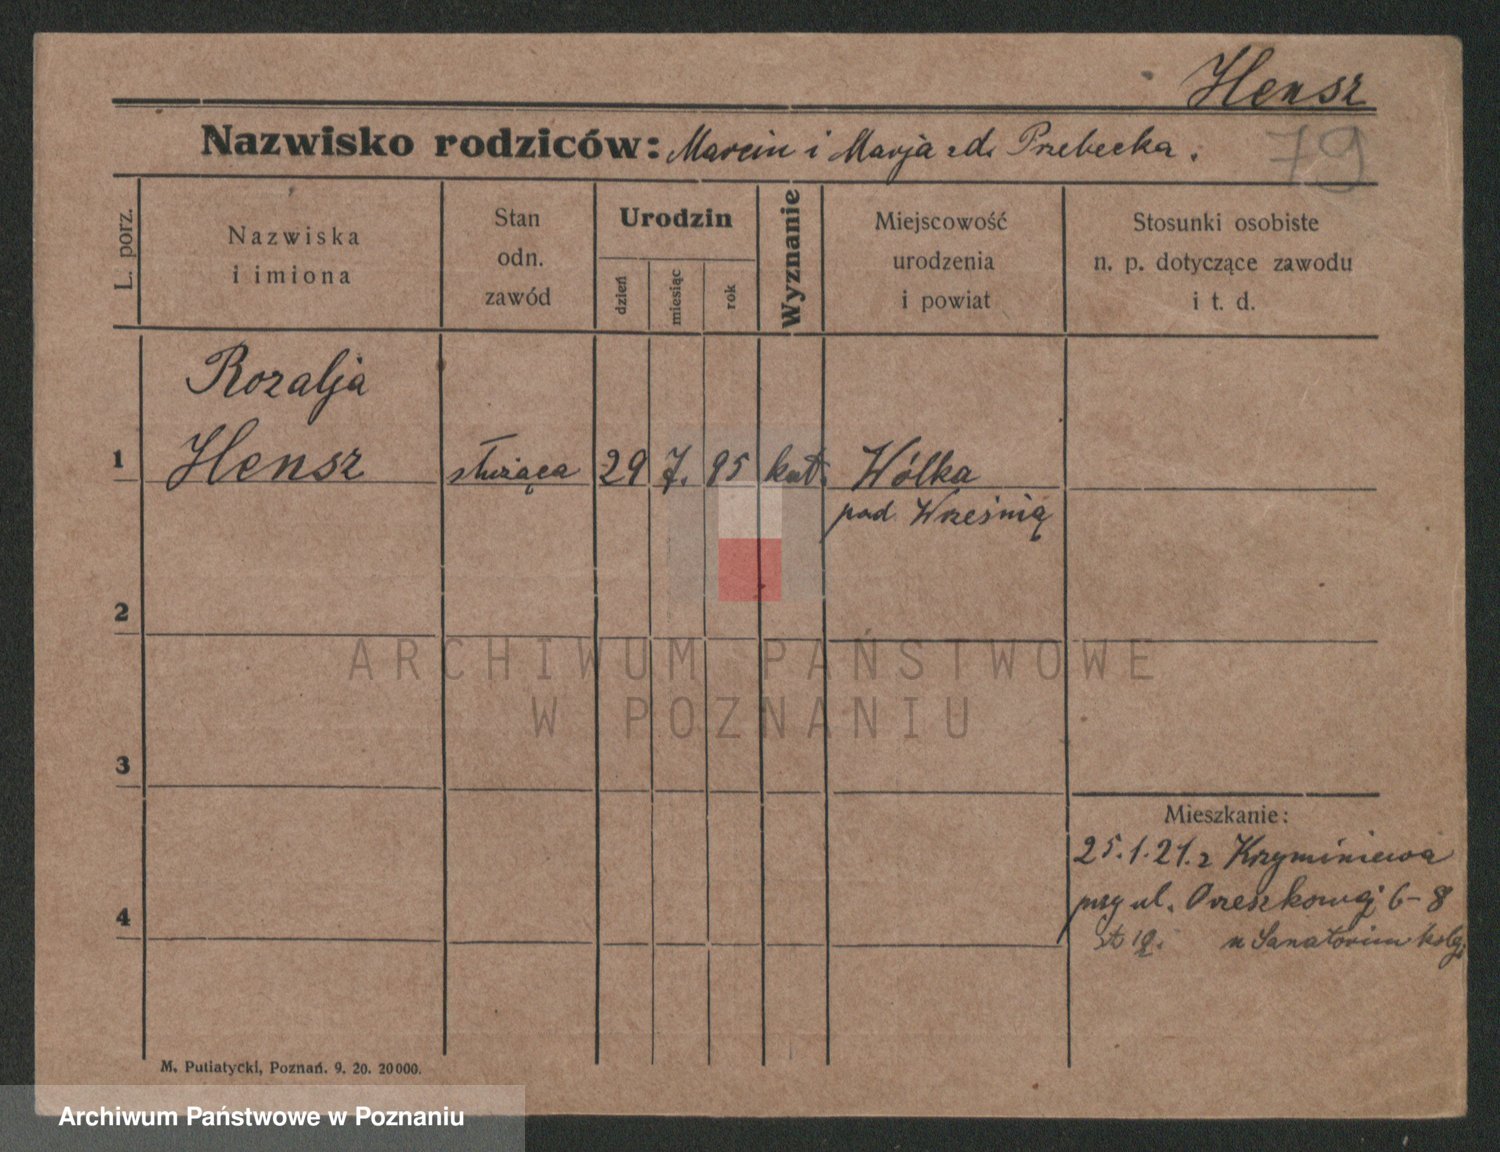 Hensz
Nazwisko rodziców: Marcin i Marja zd. Przebecka.
79
L. porz.
Nazwiska
i imiona
Stan
odn.
zawód
Urodzin
dzień
miesiąc
rok
Wyznanie
Miejscowość
urodzenia
i powiat
Stosunki osobiste
n. p. dotyczące zawodu
i t. d.
Rozalja
1 Hensz służąca 29 7. 95 kat. Wólka
pod Wrześnią
2
ARCHIWUM PAŃSTWOWE
W POZNANIU
3
Mieszkanie:
25.1.21. z Krzyminiewa
przy ul. Orzeszkowej 6-8
4
u Sanatorium
M. Putiatycki, Poznań. 9. 20. 20000.
Archiwum Państwowe w Poznaniu